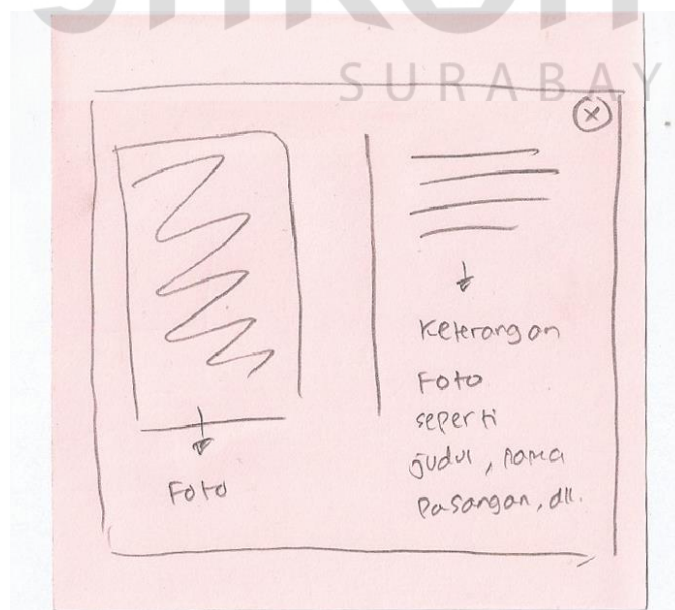 SURABAY
Foto
Keterangan
Foto
seperti
judul, nama
Pasangan, dll.